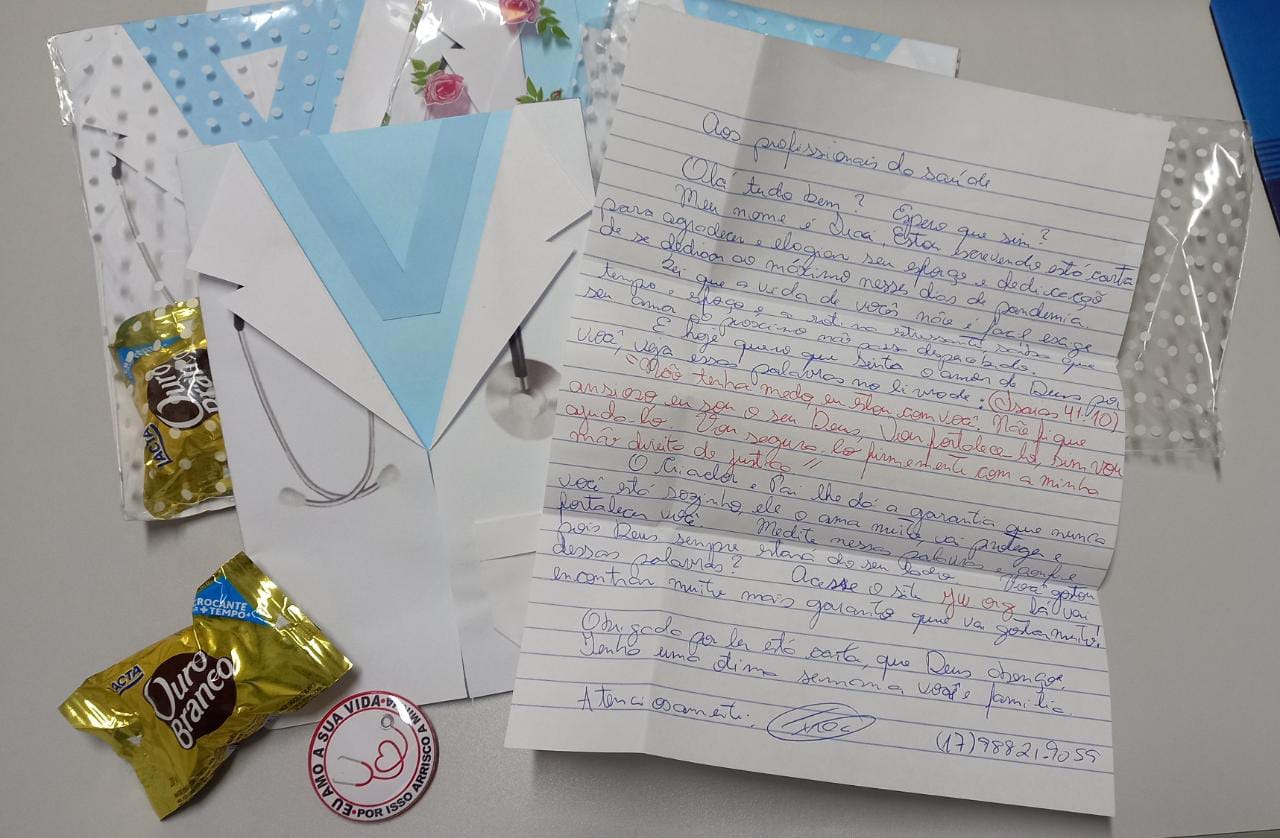 Aos profissionais da saúde
Olá tudo bem? Espero que sim?
Meu nome é Estou escrevendo está carta
para agradecer e elogiar seu esforço e dedicação
de se dedicar ao máximo nesse dias de pandemia.
Sei que a vida de vocês não é facil exige
tempo e esfoço e a rotina estressante saiba que
seu amor ao proximo não passa despercebido.
E hoje quero que sinta o amor de Deus por
você, veja essas palavras no livro de: (Isaias 41:10)
"Não tenha medo, eu estou com você. Não fique
ansioso eu sou o seu Deus, Vou fortalece-lo, sim vou
ajuda-lo Vou segura-lo firmemente com a minha
mão direita de justiça"
O Criador e Pai lhe dá a garantia que nunca
você está sozinho, ele o ama muito vai proteger e
fortalecer você. Medite nessa palavras e confie
pois Deus sempre estará do seu lado. Você gostou
dessas palavras? Acesse o site jw org lá vai
encontrar muito mais garanto que vai gostar muito!
Obrigada por ler está carta, que Deus abençoe.
Tenha uma ótima semana você e família.
Atenciosamente.
(17)98821.9059
LACTA
Ouro Branco
CROCANTE
+TEMPO
LACTA
Ouro
Branco
EU AMO A SUA VIDA • POR ISSO ARRISCO A MINHA